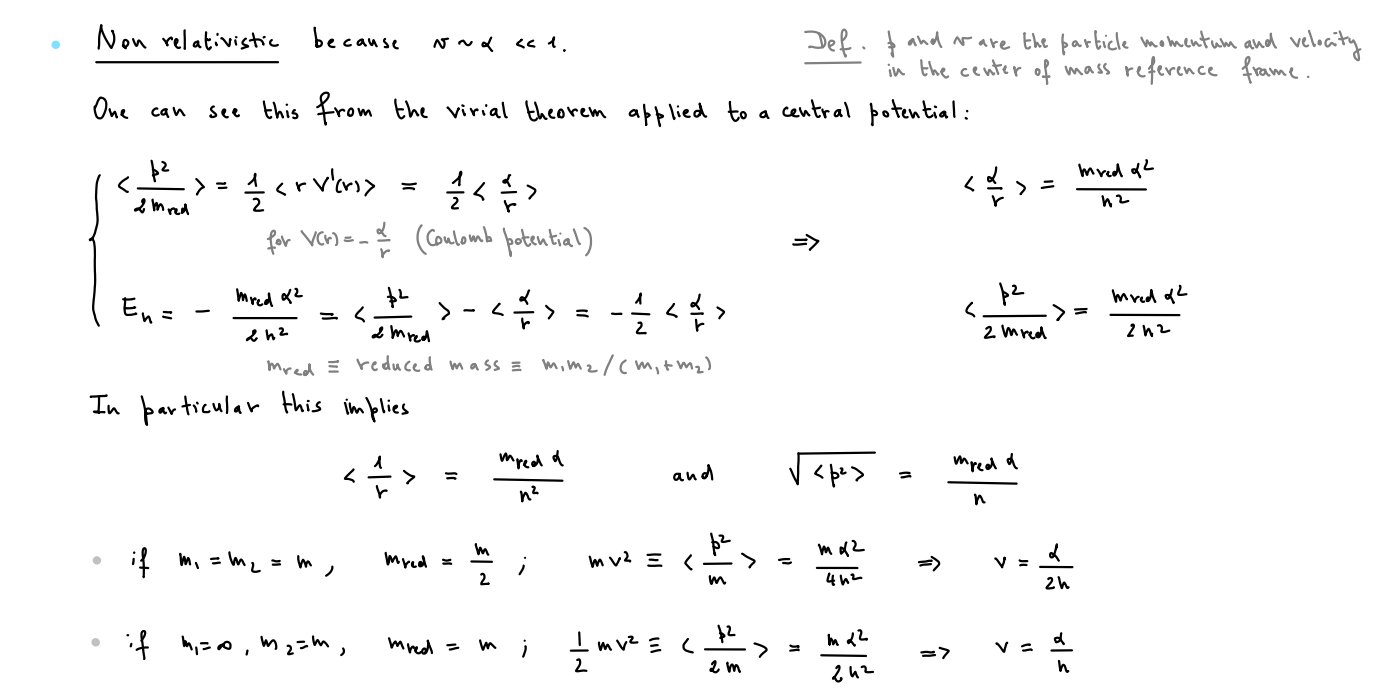 • Non relativistic because v ~ α << 1.
Def. p and v are the particle momentum and velocity
in the center of mass reference frame.
One can see this from the virial theorem applied to a central potential:
{ < p²/2m_red > = 1/2 < r V'(r) > = 1/2 < α/r >
< α/r > = m_red α²/n²
for V(r) = - α/r (Coulomb potential)
=>
E_n = - m_red α²/2n² = < p²/2m_red > - < α/r > = - 1/2 < α/r >
< p²/2m_red > = m_red α²/2n²
m_red ≡ reduced mass ≡ m₁m₂/(m₁+m₂)
In particular this implies
< 1/r > = m_red α/n² and √<p²> = m_red α/n
• if m₁ = m₂ = m, m_red = m/2 ; mv² ≡ < p²/m > = mα²/4n² => v = α/2n
• if m₁=∞, m₂=m, m_red = m ; 1/2 mv² ≡ < p²/2m > = mα²/2n² => v = α/n